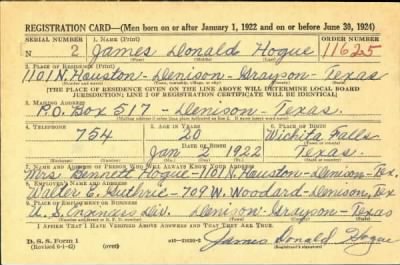 REGISTRATION CARD—(Men born on or after January 1, 1922 and on or before June 30, 1924)
SERIAL NUMBER 1. NAME (Print) ORDER NUMBER
N 2 James Donald Hogue 11625
(First) (Middle) (Last)
2. PLACE OF RESIDENCE (Print)
1101 N. Houston - Denison - Grayson - Texas
[THE PLACE OF RESIDENCE GIVEN ON THE LINE ABOVE WILL DETERMINE LOCAL BOARD
JURISDICTION; LINE 2 OF REGISTRATION CERTIFICATE WILL BE IDENTICAL]
3. MAILING ADDRESS
P.O. Box 517 - Denison - Texas
4. TELEPHONE 5. AGE IN YEARS 6. PLACE OF BIRTH
754 20 Wichita Falls
DATE OF BIRTH
Jan 2 1922 Texas
7. NAME AND ADDRESS OF PERSON WHO WILL ALWAYS KNOW YOUR ADDRESS
Mrs Bennett Hogue - 1101 N. Houston - Denison - Tex.
8. EMPLOYER'S NAME AND ADDRESS
Walter E. Guthrie - 709 W. Woodard - Denison, Tex
9. PLACE OF EMPLOYMENT OR BUSINESS
U.S. Div. Denison - Grayson - Texas
I AFFIRM THAT I HAVE VERIFIED ABOVE ANSWERS AND THAT THEY ARE TRUE.
D. S. S. Form 1
(Revised 6-1-42)
James Donald Hogue